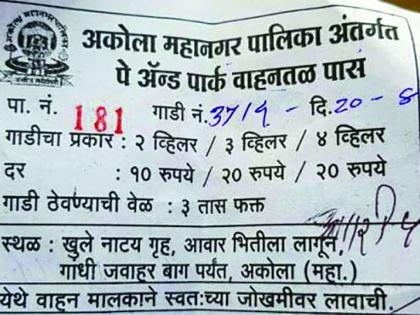 अकोला महानगर पालिका अंतर्गत
पे ॲन्ड पार्क वाहनतळ पास
पा. नं. 181 गाडी नं. 3719 - दि. 20 - 8
गाडीचा प्रकार : २ व्हिलर / ३ व्हिलर / ४ व्हिलर
दर : १० रुपये / २० रुपये / २० रुपये
गाडी ठेवण्याची वेळ : ३ तास फक्त
स्थळ : खुले नाटय गृह, आवार भितीला लागून,
गांधी जवाहर बाग पर्यंत, अकोला (महा.)
येथे वाहन मालकाने स्वतःच्या जोखमीवर लावाची.